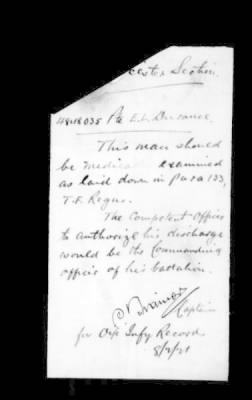 Section
Pte E. Durance.
This man should
be medical examined
as laid down in Para 133,
T.F. Regns.
The Competent Officer
to authorize his discharge
would be the Commanding
officer of his battalion.
Captain
for O i/c Infy Records
8/2/21